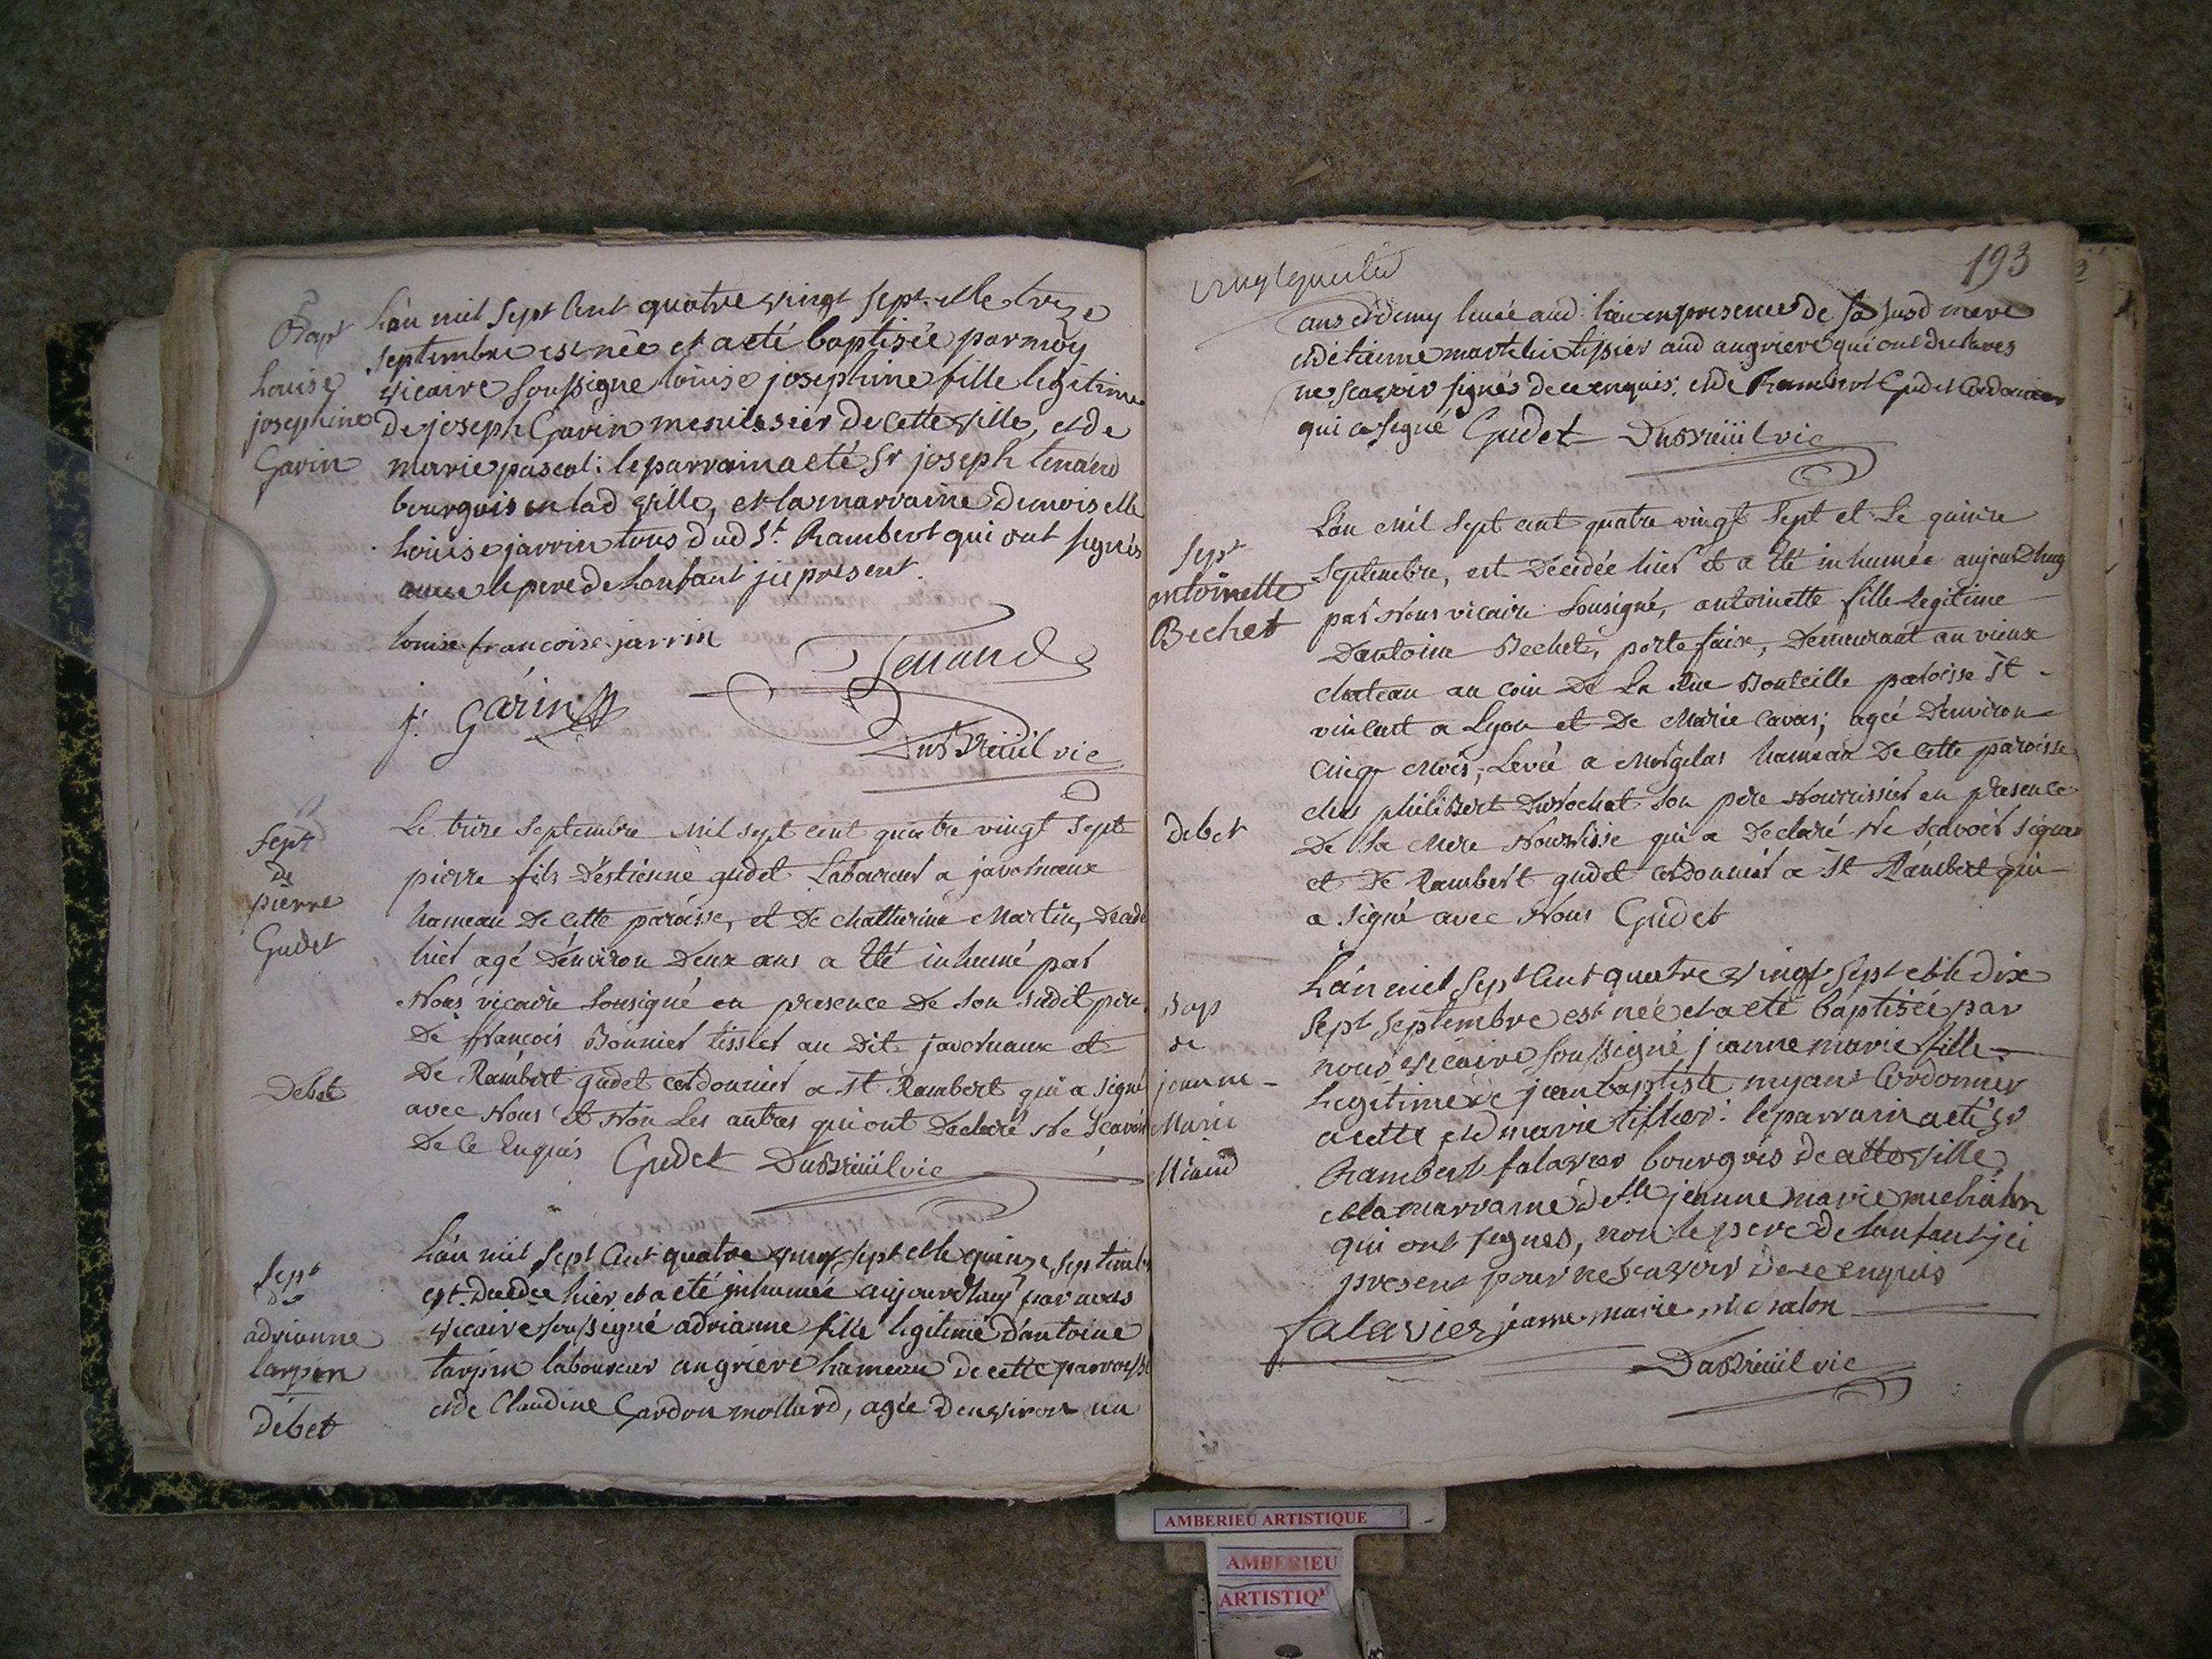 Bapt
Louise
josephine
Gavin
L'an mil sept Cent quatre vingt sept. et le treze
septembre est née et a eté baptisée par moy
vicaire soussigné loüise josephine fille legitime
de joseph Gavin menuissier de cette ville, et de
marie pascal: le parrain a eté Sr joseph tenand
bourgois en lad ville, et la marraine demoiselle
Loüise jarrin tous dud St. Rambert qui ont signés
avec le pere de L'enfant jci present.
louise francoise jarrin
Tenand
j. Garin
DuBreüil vic
Sept
De
pierre
Gudet
Debet
Le treize Septembre mil sept cent quatre vingt sept
pierre fils D'estienne gudet Laboureur a javornaux
hameau De Cette paroisse, et De Chatherine Martin, Decedé
hier agé D'environ Deux ans a Eté inhumé par
Nous vicaire Sousigné en presence De son sudit pere
De françois Bonnier tissier au Dit javornaux et
De Rambert gudet cordonnier a St Rambert qui a signé
avec Nous et Non Les autres qui ont Declaré Ne Scavoir
De Ce Enquis Gudet DuBreüil vic
Sept
de
adrianne
tarpin
débet
L'an mil sept Cent quatre vingt sept et le quinze septembre
est decedée hier et a eté jnhumée aujourdhuy par nous
vicaire soussigné adrianne fille legitime d'antoine
tarpin laboureur angriere hameau de cette parroisse
et de Claudine Gardon mollard, agée d'environ un
193
ans et demy levée aud: lieu en presence de sa susd mere
et d'etienne martelin tissier aud angriere qui ont declarés
ne scavoir signer de ce enquis. et de Rambert Gudet Cordonier
qui a signé Gudet DuBreüil vic
Sept
antoinette
Bechet
debet
L'an mil sept cent quatre vingt sept et Le quinze
Septembre, est Decedée hier et a Eté inhumée aujourd'huy
par Nous vicaire Sousigné, antoinette fille Legitime
D'antoine Bechet, porte faix, Demeurant au vieux
chateau au coin De La Rue Bouteille paroisse St
vincent a Lyon et De Marie Cavas; agée D'environ
Cinq Mois; Levée a Morgelas hameau De Cette paroisse
chés philibert Durochat son pere Nourrissier en presence
De sa Mere Nourrisse qui a Declaré Ne scavoir signer
et De Rambert gudet cordonnier a St Rambert qui
a signé avec Nous Gudet
Bap
de
jeanne
Marie
Miand
L'an mil sept Cent quatre vingt sept et le dix
sept septembre est née et a eté baptisée par
nous vicaire soussigné jeanne marie fille
Legitime de jean baptiste myand Cordonnier
a cette et de marie tissier: le parrain a eté sr
Rambert falavier bourgois de cette ville,
et la marraine delle jeanne marie michalon
qui ont signés, non le pere de L'enfant jci
present pour ne scavoir de ce enquis
falavier jeanne marie michalon
DuBreüil vic
AMBERIEU ARTISTIQUE
AMBERIEU
ARTISTIQ